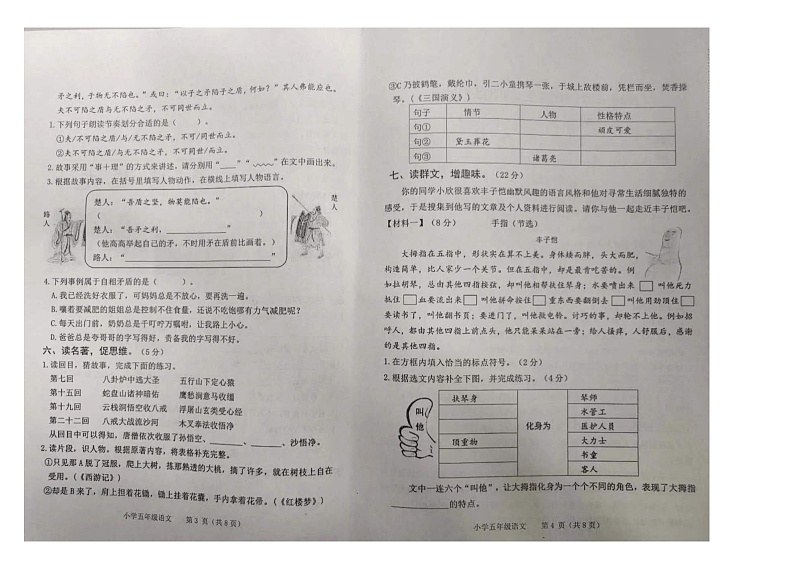 矛之利，于物无不陷也。”或曰：“以子之矛陷子之盾，何如？”其人弗能应也。
夫不可陷之盾与无不陷之矛，不可同世而立。
1.下列句子朗读节奏划分合适的是（ ）。
①夫/不可陷之盾/与/无不陷之矛，不可/同世而立。
②夫不可陷之盾/与无不陷之矛，不可同世而立。
2.故事采用“事+理”的方式来讲述，请分别用“____”“﹏﹏”在文中画出来。
3.根据故事内容，在括号里填写人物动作，在横线上填写人物语言。
路人
楚人：“吾盾之坚，物莫能陷也。”
（ ）
楚人：“吾矛之利，____________”
（他高高举起自己的矛，不时用矛在盾前比画着。）
路人：“____________”
楚人
4.下列事例属于自相矛盾的是（ ）。
A.我已经洗好衣服了，可妈妈总是不放心，要再洗一遍。
B.嚷着要减肥的姐姐总是控制不住食量，还说不吃饱哪有力气减肥呢？
C.每天出门前，奶奶总是千叮咛万嘱咐，让我路上小心。
D.爸爸总是夸哥哥的字写得好，责备我的字写得不好。
六、读名著，促思维。（5分）
1.读回目，猜故事，完成下面的练习。
第七回 八卦炉中逃大圣 五行山下定心猿
第十五回 蛇盘山诸神暗佑 鹰愁涧意马收缰
第十九回 云栈洞悟空收八戒 浮屠山玄奘受心经
第二十二回 八戒大战流沙河 木叉奉法收悟净
从回目中可以得知，唐僧依次收服了孙悟空、________、________、沙悟净。
2.读片段，识人物。根据原著内容，将表格补充完整。
①只见那A脱了冠服，爬上大树，拣那熟透的大桃，摘了许多，就在树枝上自在
受用。（《西游记》）
②却是B来了，肩上担着花锄，锄上挂着花囊，手内拿着花帚。（《红楼梦》）
小学五年级语文 第3页（共8页）
③C乃披鹤氅，戴纶巾，引二小童携琴一张，于城上敌楼前，凭栏而坐，焚香操
琴。（《三国演义》）
句子 情节 人物 性格特点
句子① 顽皮可爱
句子② 黛玉葬花
句子③ 诸葛亮
七、读群文，增趣味。（22分）
你的同学小欣很喜欢丰子恺幽默风趣的语言风格和他对寻常生活细腻独特的
感受，于是搜集到他写的文章及个人资料进行阅读。请你与他一起走近丰子恺吧。
【材料一】（8分） 手指（节选）
丰子恺
大拇指在五指中，形状实在算不上美。身体矮而胖，头大而肥，
构造简单，比人家少一个关节。但在五指中，却是最肯吃苦的。例
如拉胡琴，总由其他四指按弦，却叫他相帮扶住琴身；水要喷出来□叫他死力
抵住□血要流出来□叫他拼命按住□重东西要翻倒去□叫他用劲顶住□
要读书了，叫他翻书页；要进门了，叫他揿电铃。讨巧的事，却轮不上他。例如招
呼人，都由其他四指上前点头，他只能呆呆站在一旁；给人搔痒，人舒服后，感谢
的是其他四指。
1.在方框内填入恰当的标点符号。（2分）
2.根据选文内容补全下图，并完成练习。（4分）
叫他
扶琴身
顶重物
化身为
琴师
水管工
医护人员
大力士
书童
客人
文中一连六个“叫他”，让大拇指化身为一个个不同的角色，表现了大拇指
____________的特点。
小学五年级语文 第4页（共8页）